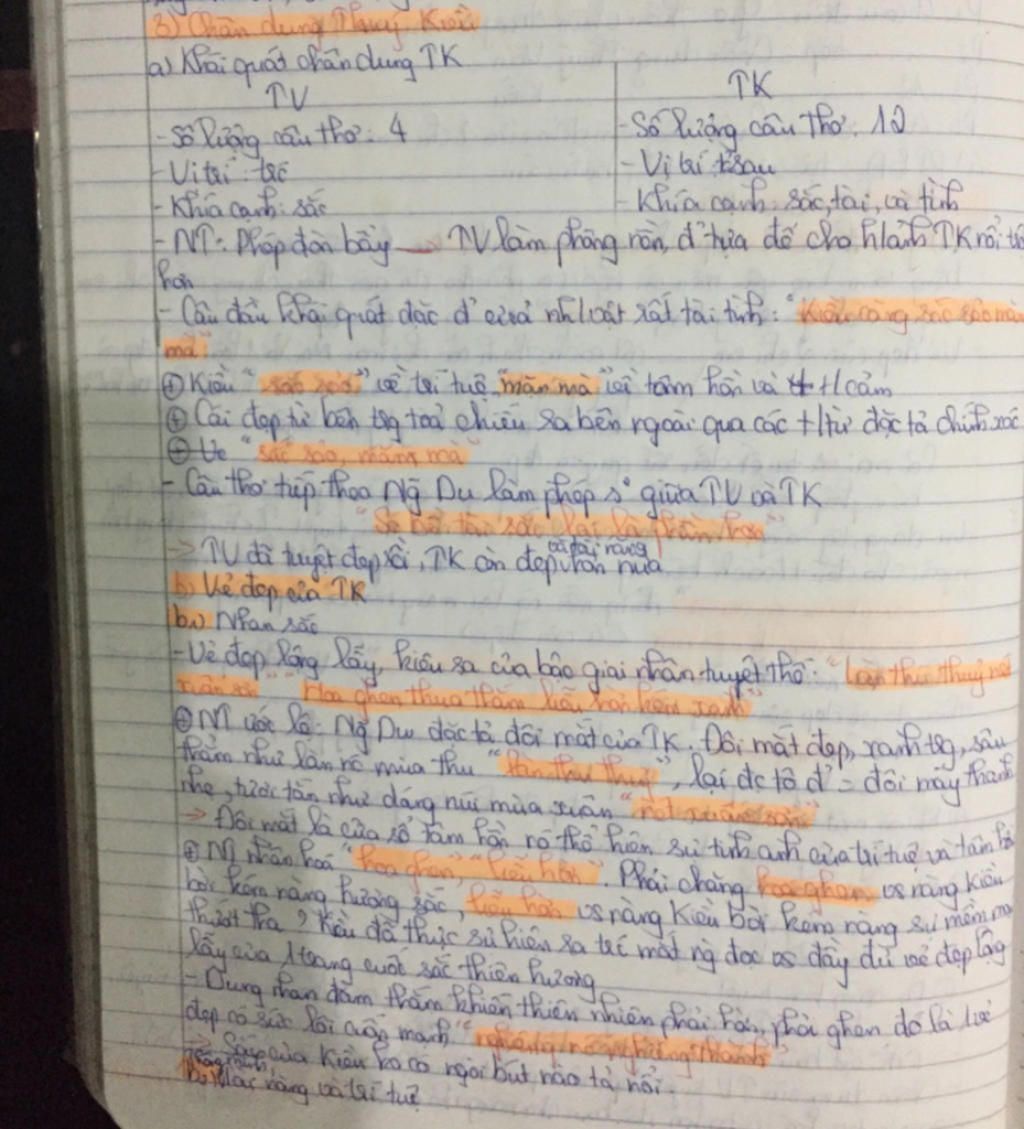 3) Chân dung Thuý Kiều
a) Khái quát chân dung TK
TV TK
- Số lượng câu thơ: 4 - Số lượng câu thơ: 12
- Vị trí: trc - Vị trí: sau
- Khía cạnh: sắc - Khía cạnh: sắc, tài, và tình
- NT: Phép đòn bẩy → TV làm phông nền, đ' tựa để cho TK nổi
hơn
- Câu đầu khái quát đặc đ' của nh/vật rất tài tình: "Kiều càng sắc sảo mặn
mà"
⊕ Kiều "sắc sảo" về trí tuệ "mặn mà" về tâm hồn và t/cảm
⊕ Cái đẹp từ bên trg toả chiếu ra bên ngoài qua các t/từ đặc tả chính xác
⊕ Ve "sắc sảo, mặng mà"
- Câu thơ tiếp theo Ng Du làm phép s² giữa TV và TK
"So bề tài sắc lại là phần hơn"
→ TV đã tuyệt đẹp rồi, TK còn đẹp và tài năng hơn nữa
b) Vẻ đẹp của TK
b₁) Nhan sắc
- Vẻ đẹp lộng lẫy, kiêu sa của bao giai nhân tuyệt thế: "Làn thu thuỷ nét
xuân sơn" "Hoa ghen thua thắm liễu hờn kém xanh"
⊕ NT ước lệ: Ng Du đặc tả đôi mắt của TK. Đôi mắt đẹp, xanh trg, sâu
thẳm như làn nc mùa thu "làn thu thuỷ", lại đc tô đ' = đôi mày thanh
nhẹ, tươi tắn như dáng núi mùa xuân "nét xuân sơn"
→ Đôi mắt là cửa sổ tâm hồn nó thể hiện sự tinh anh của trí tuệ và tâm hồ
⊕ NT nhân hoá "hoa ghen", "liễu hờn". Phải chăng hoa ghen vs nàng Kiều
bởi kém nàng hương sắc, liễu hờn vs nàng Kiều bởi kém nàng sự mềm mại
thướt tha, Kiều đã thực sự hiện ra trc mắt ng đọc vs đầy đủ vẻ đẹp lộng
lẫy của 1 trang quốc sắc thiên hương
- Dung nhan đằm thắm khiến thiên nhiên phải hờn, phải ghen đó là vẻ
đẹp có sức lôi cuốn mạnh "nghiêng nước nghiêng thành"
→ Sắc của Kiều ko có ngòi bút nào tả nổi.
và trí tuệ